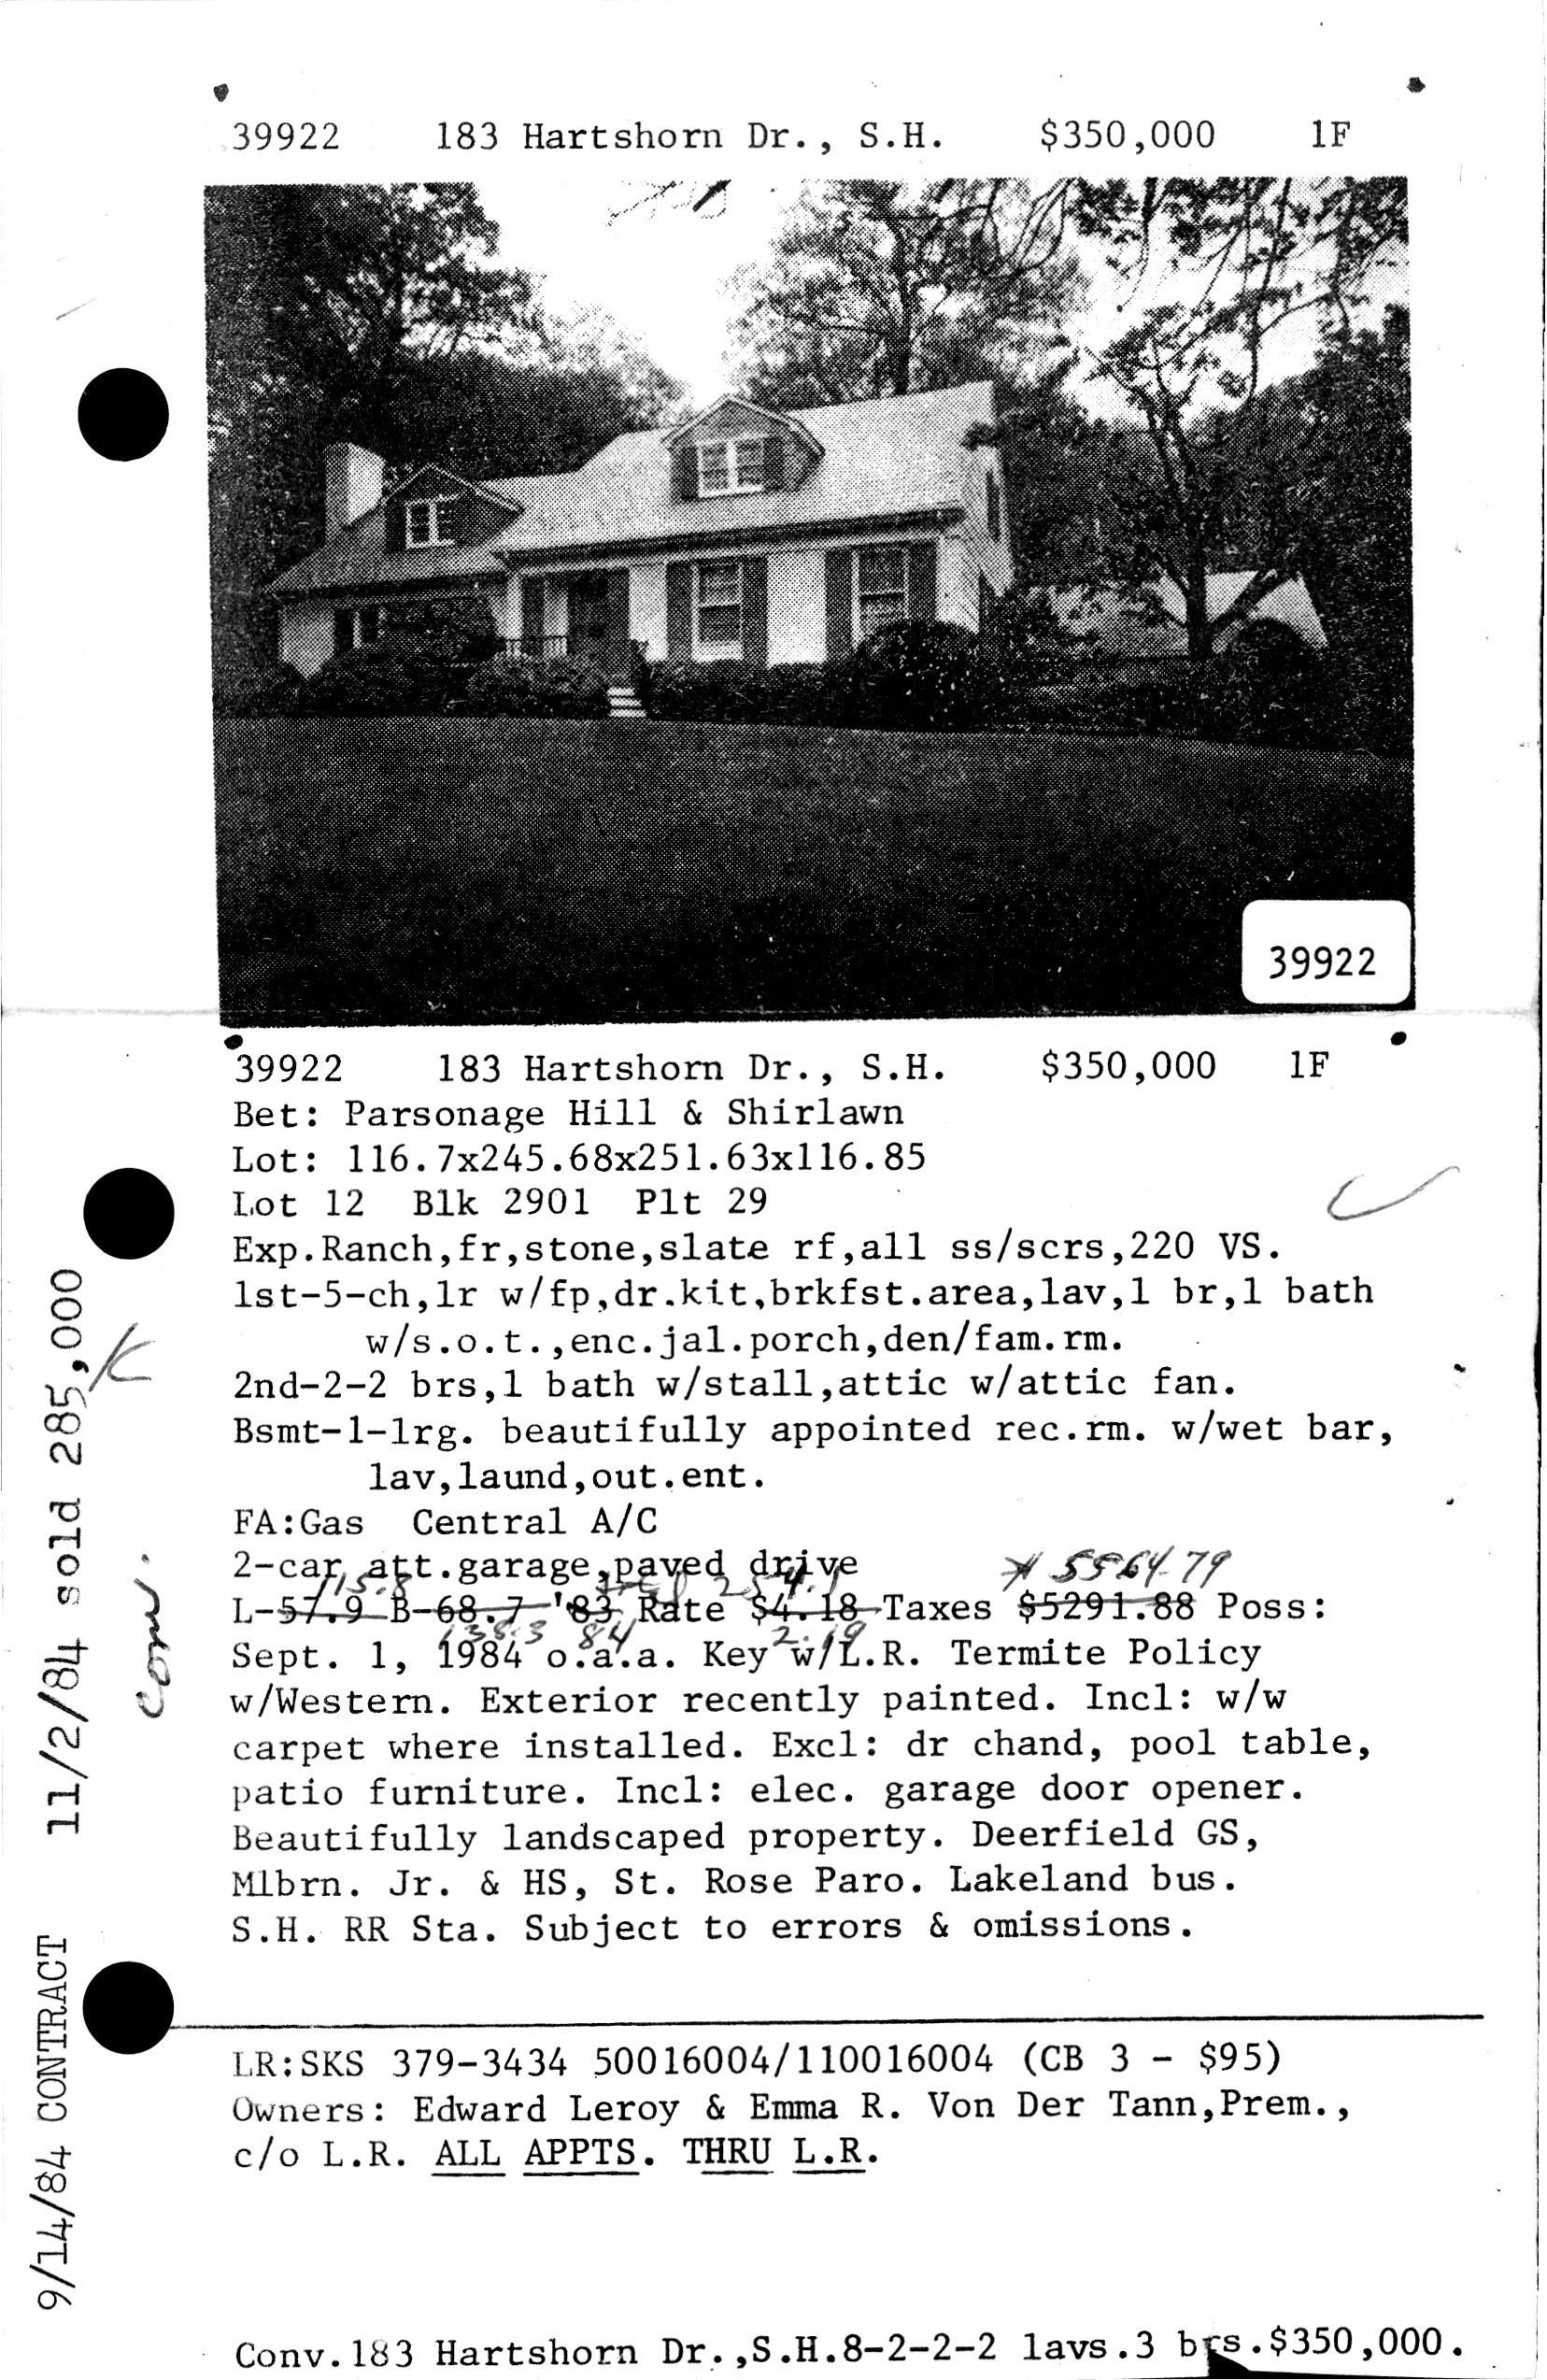 39922 183 Hartshorn Dr., S.H. $350,000 1F
39922
39922 183 Hartshorn Dr., S.H. $350,000 1F
Bet: Parsonage Hill & Shirlawn
Lot: 116.7x245.68x251.63x116.85
Lot 12 Blk 2901 Plt 29
Exp.Ranch,fr,stone,slate rf,all ss/scrs,220 VS.
1st-5-ch,lr w/fp,dr.kit,brkfst.area,lav,1 br,1 bath
w/s.o.t.,enc.jal.porch,den/fam.rm.
2nd-2-2 brs,1 bath w/stall,attic w/attic fan.
Bsmt-1-lrg. beautifully appointed rec.rm. w/wet bar,
lav,laund,out.ent.
FA:Gas Central A/C
2-car att.garage,paved drive
* 5564.79
115.8 total 254.1
L-57.9 B-68.7 '83 Rate $4.18 Taxes $5291.88 Poss:
138.3 84 2.19
Sept. 1, 1984 o.a.a. Key w/L.R. Termite Policy
w/Western. Exterior recently painted. Incl: w/w
carpet where installed. Excl: dr chand, pool table,
patio furniture. Incl: elec. garage door opener.
Beautifully landscaped property. Deerfield GS,
Mlbrn. Jr. & HS, St. Rose Paro. Lakeland bus.
S.H. RR Sta. Subject to errors & omissions.
LR:SKS 379-3434 50016004/110016004 (CB 3 - $95)
Owners: Edward Leroy & Emma R. Von Der Tann,Prem.,
c/o L.R. ALL APPTS. THRU L.R.
Conv.183 Hartshorn Dr.,S.H.8-2-2-2 lavs.3 brs.$350,000.
9/14/84 CONTRACT 11/2/84 sold 285,000
K